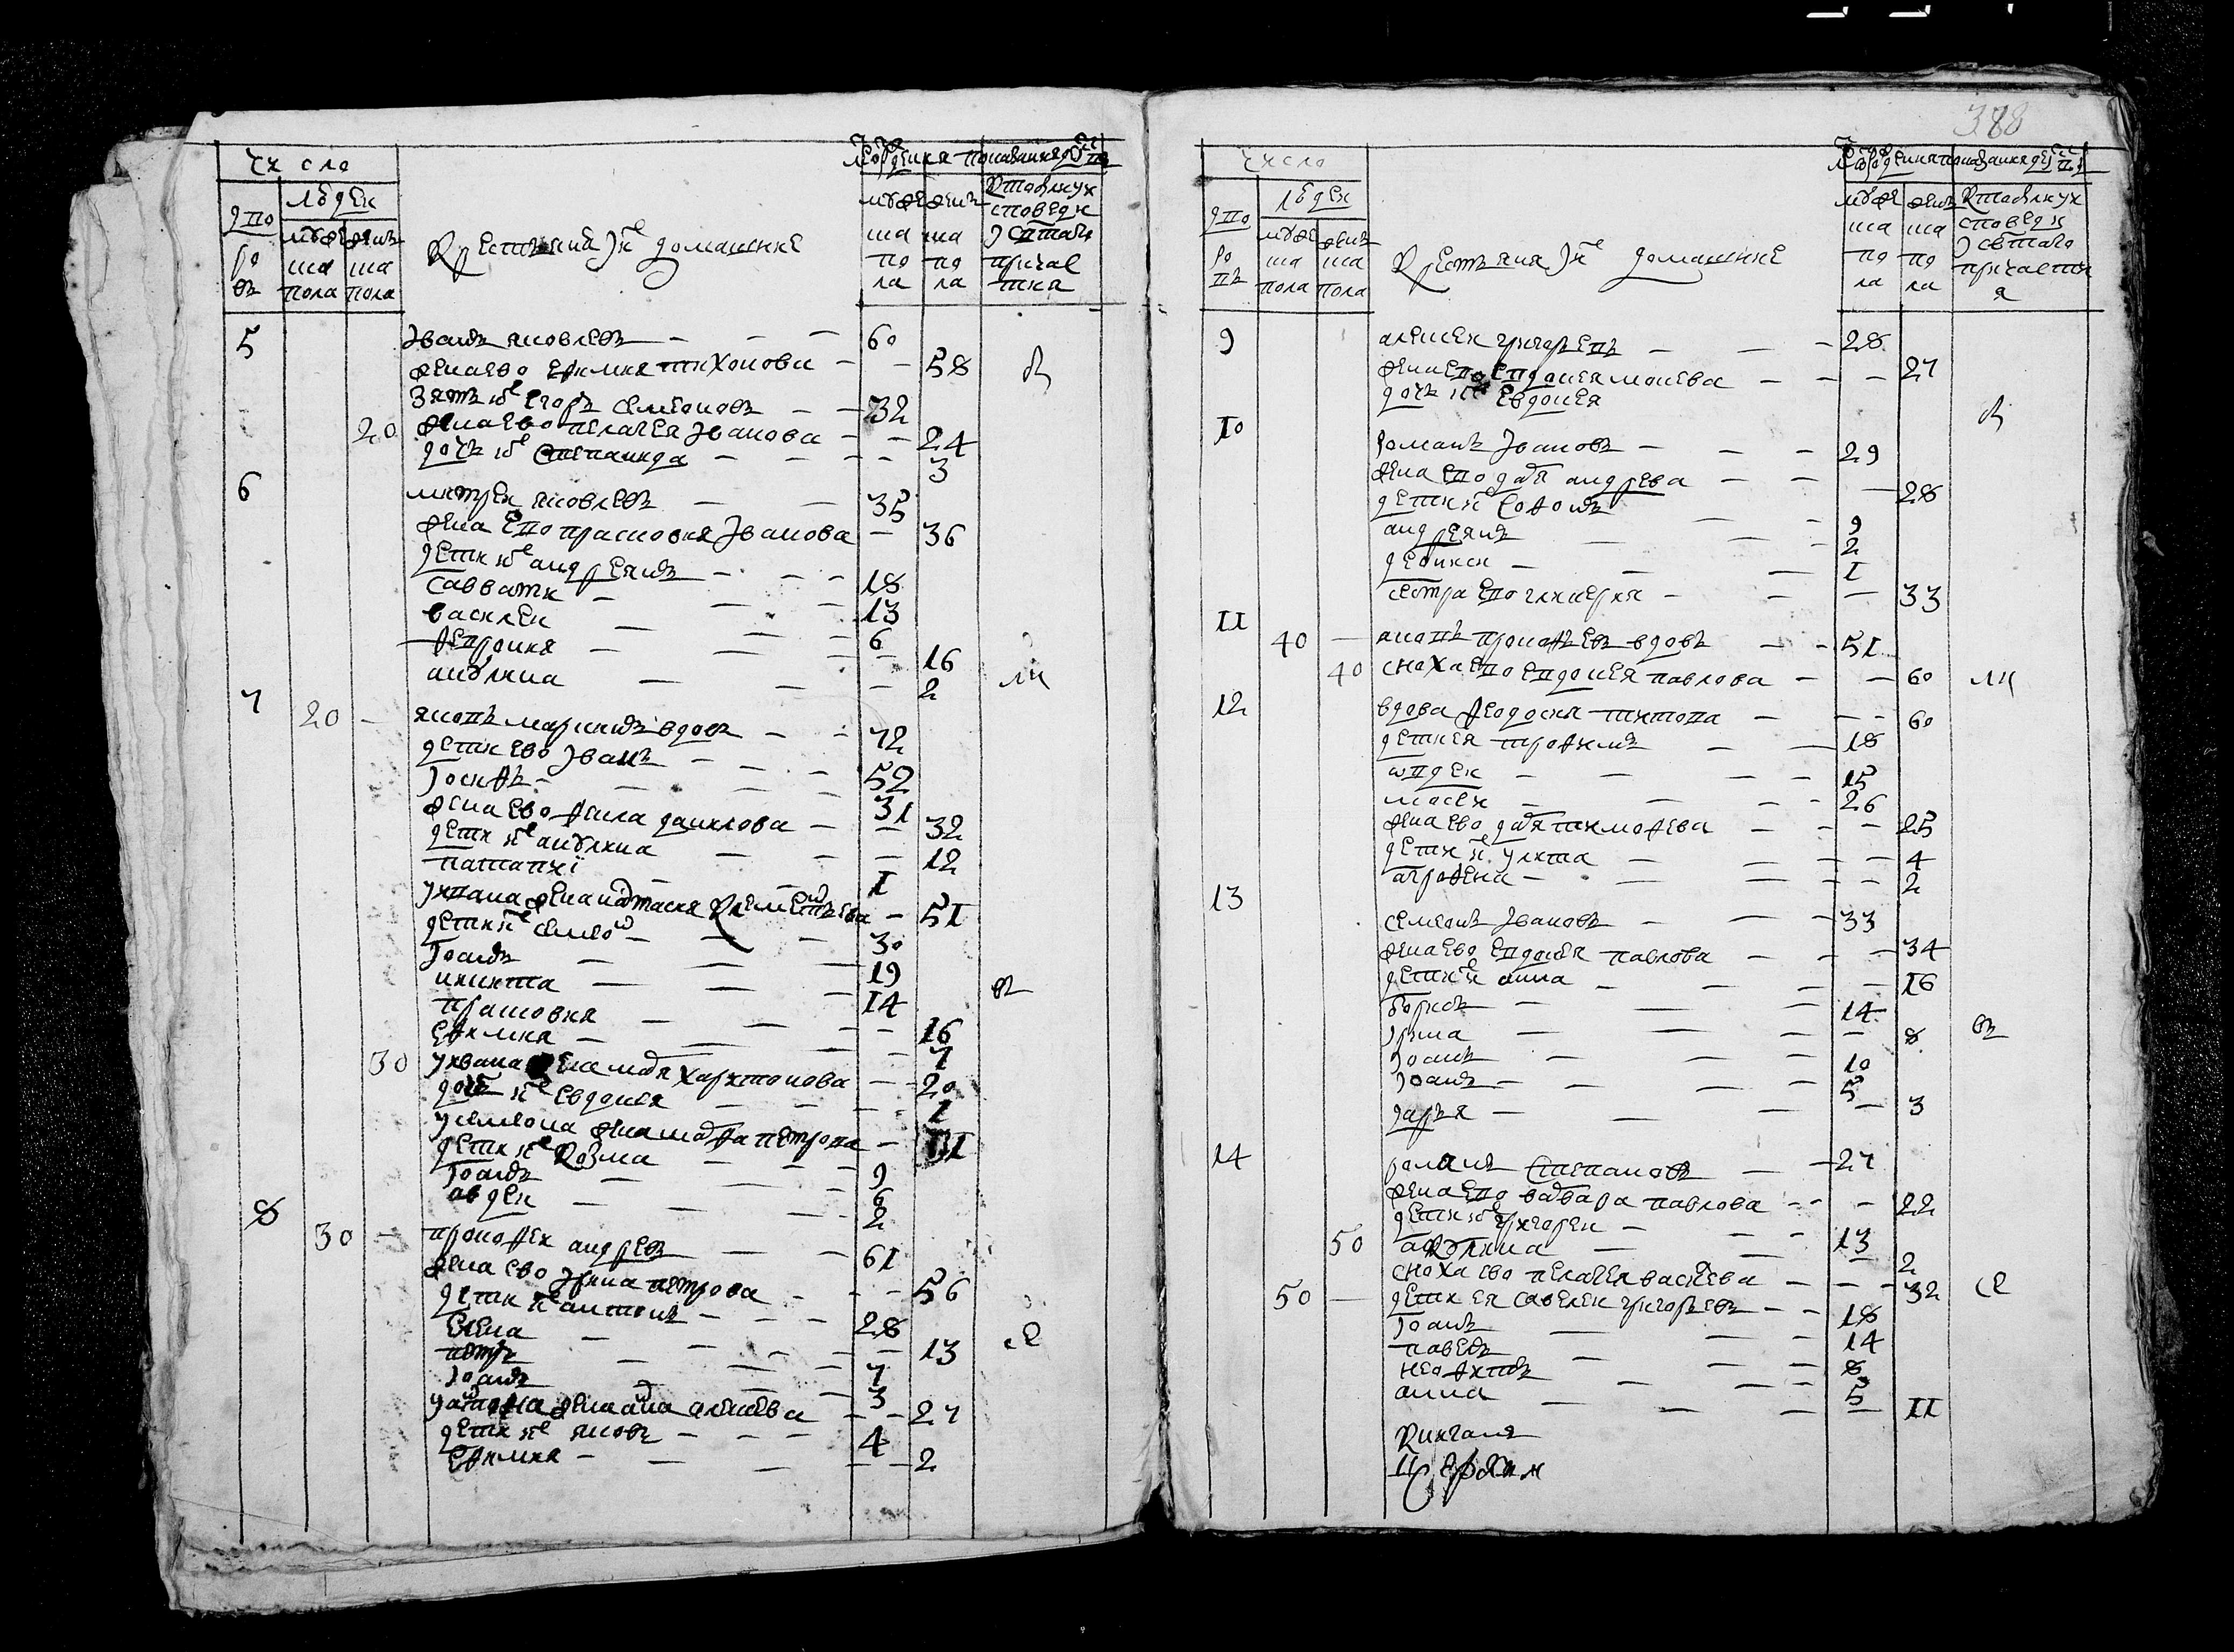 388
число
дво
ров
людеи
муже
ска
пола
женс
ка
пола
крестьяня и их домашние
От рождения
муже
ска
по
ла
женс
ка
по
ла
Кто был ку их
споведи
и святаго
причас
тия
5 Иванъ яковлевъ — 60
жена ево евфимия тихонова — 58
зять их егоръ семеновъ — 32
20 жена ево пелагея Иванова — 24
дочь их степанида — 3
6 митреи яковлевъ — 35
жена ево прасковия Иванова — 36
дети их андреянъ — 18
савватеи — 13
василеи — 6
феврония — 16
акулина — 2
7 20 — яковъ маркинъ вдовъ — 72
дети ево Иванъ — 52
Иосифъ — 31
жена ево фекла данилова — 32
дети их акулина — 12
патапиї — 1
у ивана жена настасия клементьева — 51
дети их семенъ — 30
Иоанъ — 19
никита — 14
прасковия — 16
евфимия — 7
30 у ивана жена марья харитонова — 20
дочь их евдокея — 1
у семена жена марфа петрова — 31
дети их козма — 9
Иоанъ — 6
авдеи — 2
8 30 — прокофеи андреевъ — 61
жена ево Ирина петрова — 56
дети их антонъ — 28
елена — 13
петръ — 7
Иоанъ — 3
у антона жена анна алексеева — 27
дети их яковъ — 4
евфимия — 2
число
дво
ро
въ
людеи
муже
ска
пола
женс
ка
пола
крестьяня и их домашние
муже
ска
по
ла
женс
ка
по
ла
Кто был ку их
споведи
и святаго
причасти
я
9 алексеи григорьевъ — 28
жена ево евдокея мокеева — 27
дочь их евдокея
10 романъ Ивановъ — 29
жена ево дарья андреева — 28
дети их софонъ — 9
андреянъ — 2
денисеи — 1
сестра ево гликерия — 33
11 40 — яковъ прокофьевъ вдовъ — 51
40 сноха ево евдокея павлова — 60
12 вдова феодосия титова — 60
дети ея трофимъ — 18
авдеи — 15
мосеи — 26
жена ево дарья тимофеева — 25
дети их улита — 4
аграфена — 2
13 семенъ Ивановъ — 33
жена ево евдокия павлова — 34
дети их анна — 16
борисъ — 14
Ирина — 8
Иоанъ — 10
Иоанъ — 5
дарья — 3
14 романъ степановъ — 27
жена ево варвара павлова — 22
дети их григореи — 13
50 акулина — 2
сноха ево пелагея васильева — 32
50 — дети ея савелеи григорьевъ — 18
Иоанъ — 14
павелъ — 8
неофитъ — 5
анна — 11